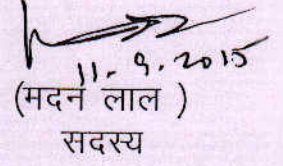 11.9.2015
(मदन लाल )
सदस्य